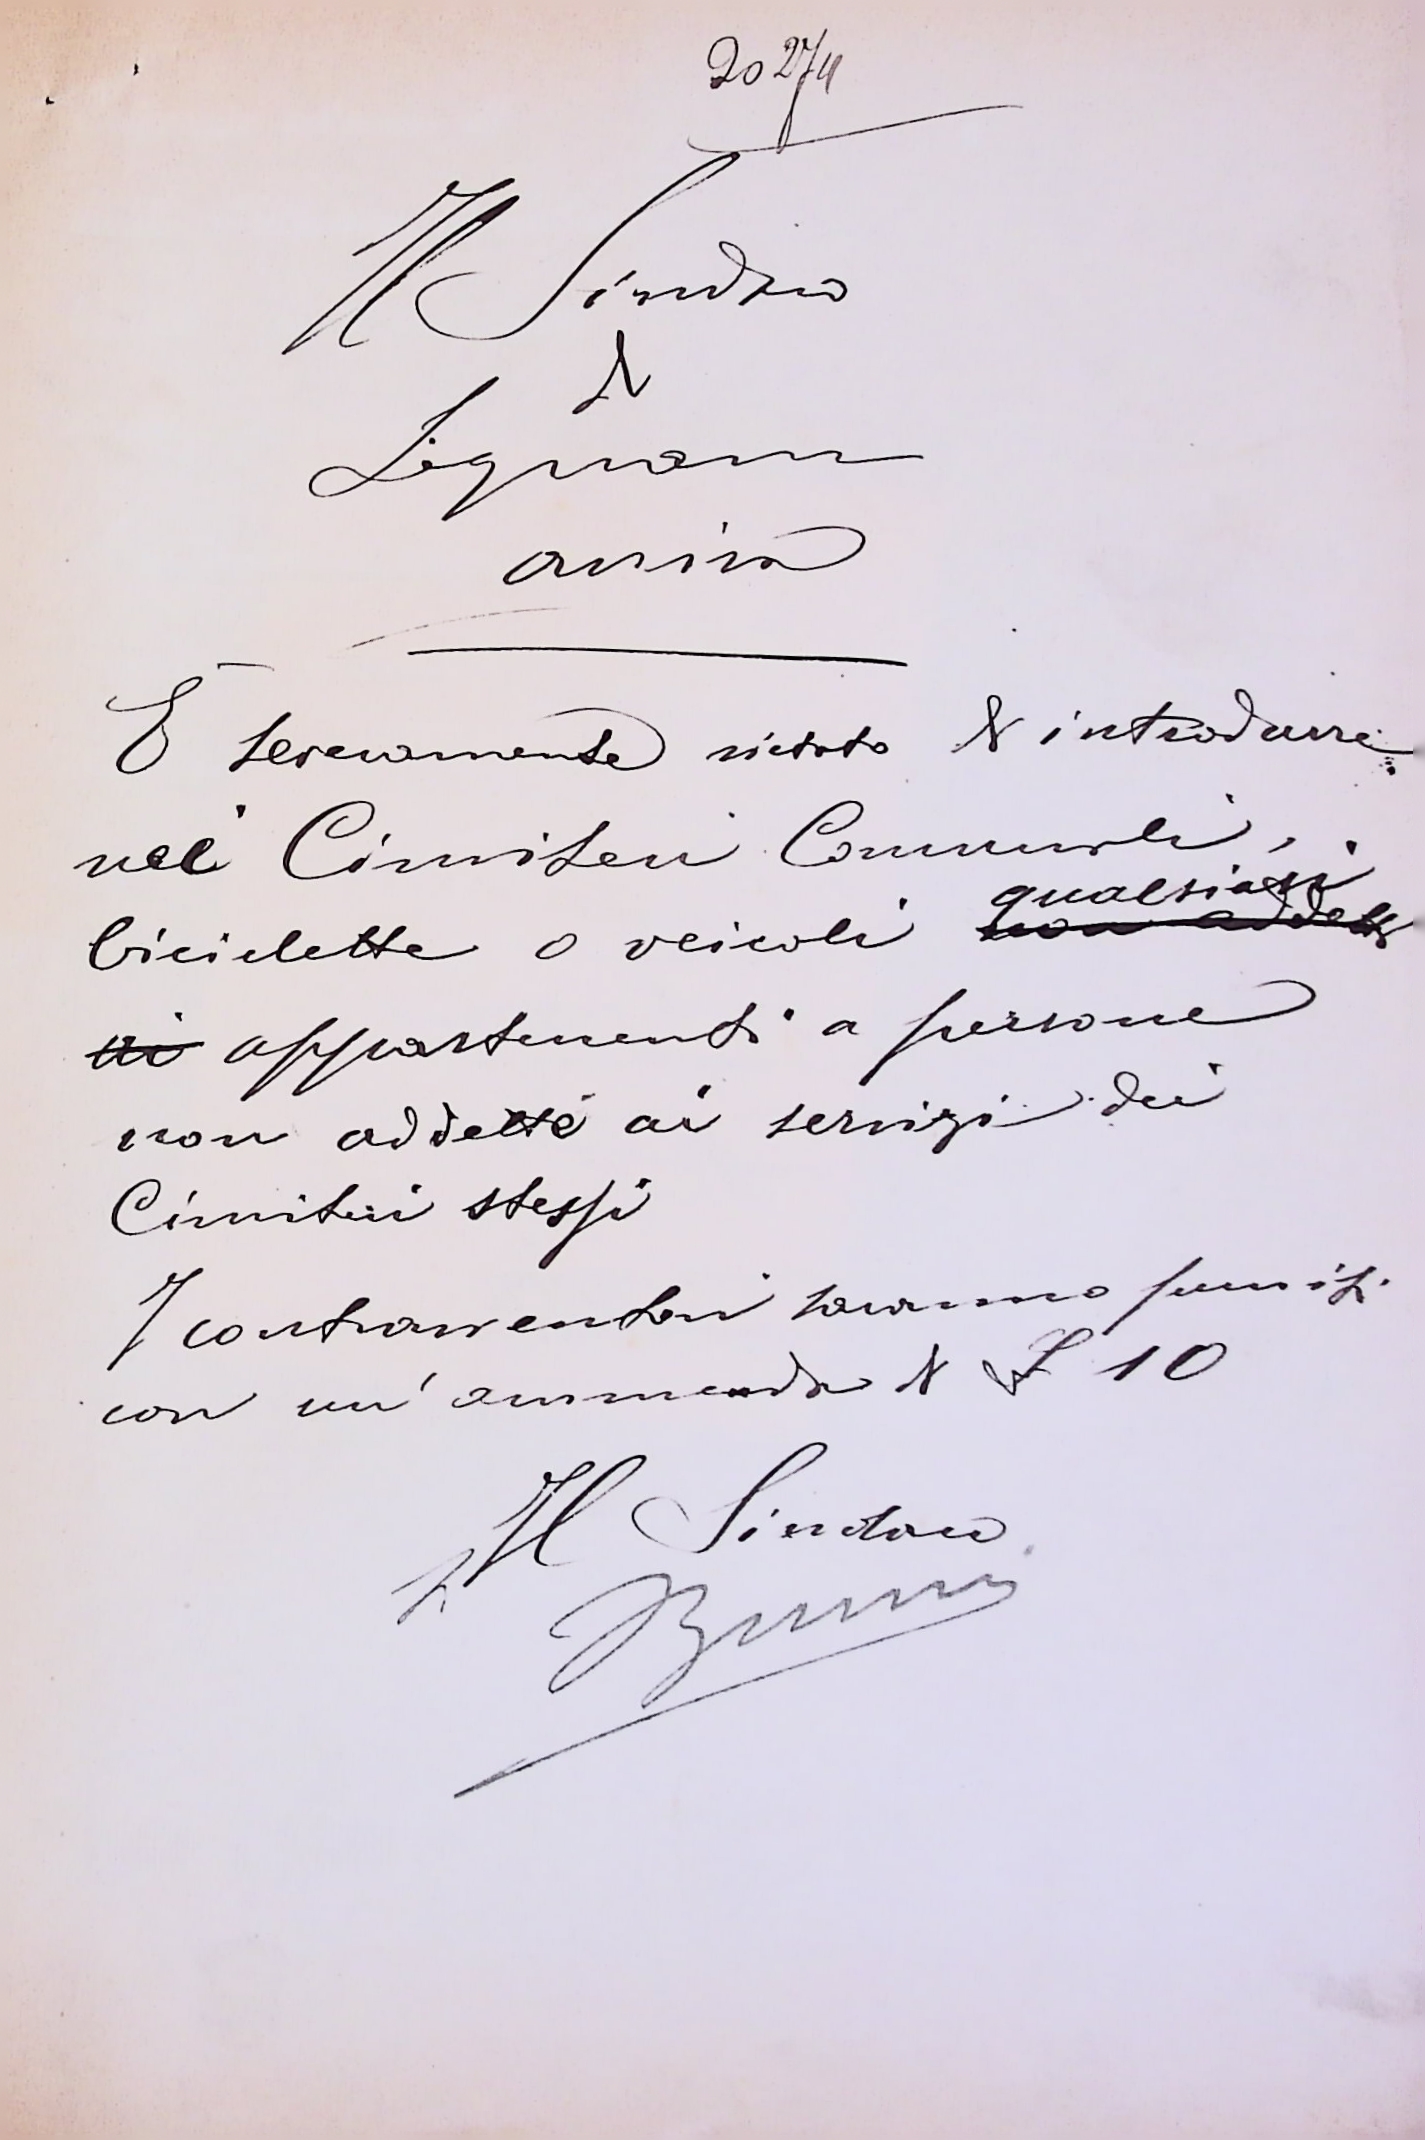 Il Sindaco
di
Legnano
avvisa
È severamente vietato di introdurre
nei Cimiteri Comunali,
biciclette o veicoli qualsiasi non addetti
ai appartenenti a persone
non addette ai servizi dei
Cimiteri stessi
I contravventori saranno puniti
con un'ammenda di L 10
Il Sindaco